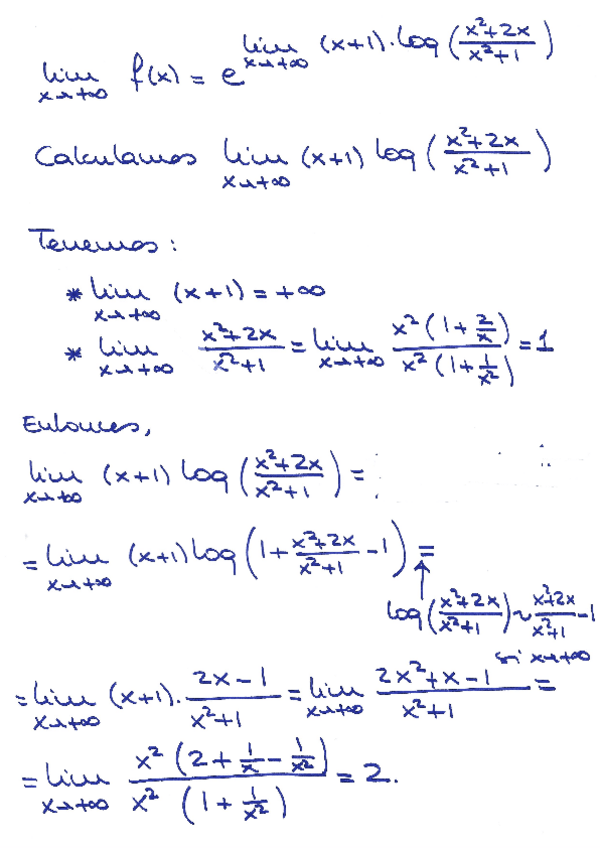 lim f(x) = e^{lim (x+1)·log((x²+2x)/(x²+1))}
x→+∞ x→+∞
Calculamos lim (x+1) log((x²+2x)/(x²+1))
x→+∞
Tenemos:
* lim (x+1) = +∞
x→+∞
* lim (x²+2x)/(x²+1) = lim (x²(1+2/x))/(x²(1+1/x²)) = 1
x→+∞ x→+∞
Entonces,
lim (x+1) log((x²+2x)/(x²+1)) =
x→+∞
= lim (x+1) log(1+(x²+2x)/(x²+1) -1) =
x→+∞
↑
log((x²+2x)/(x²+1)) ~ (x²+2x)/(x²+1) -1
si x→+∞
= lim (x+1)·(2x-1)/(x²+1) = lim (2x²+x-1)/(x²+1) =
x→+∞ x→+∞
= lim (x²(2+1/x-1/x²))/(x²(1+1/x²)) = 2.
x→+∞